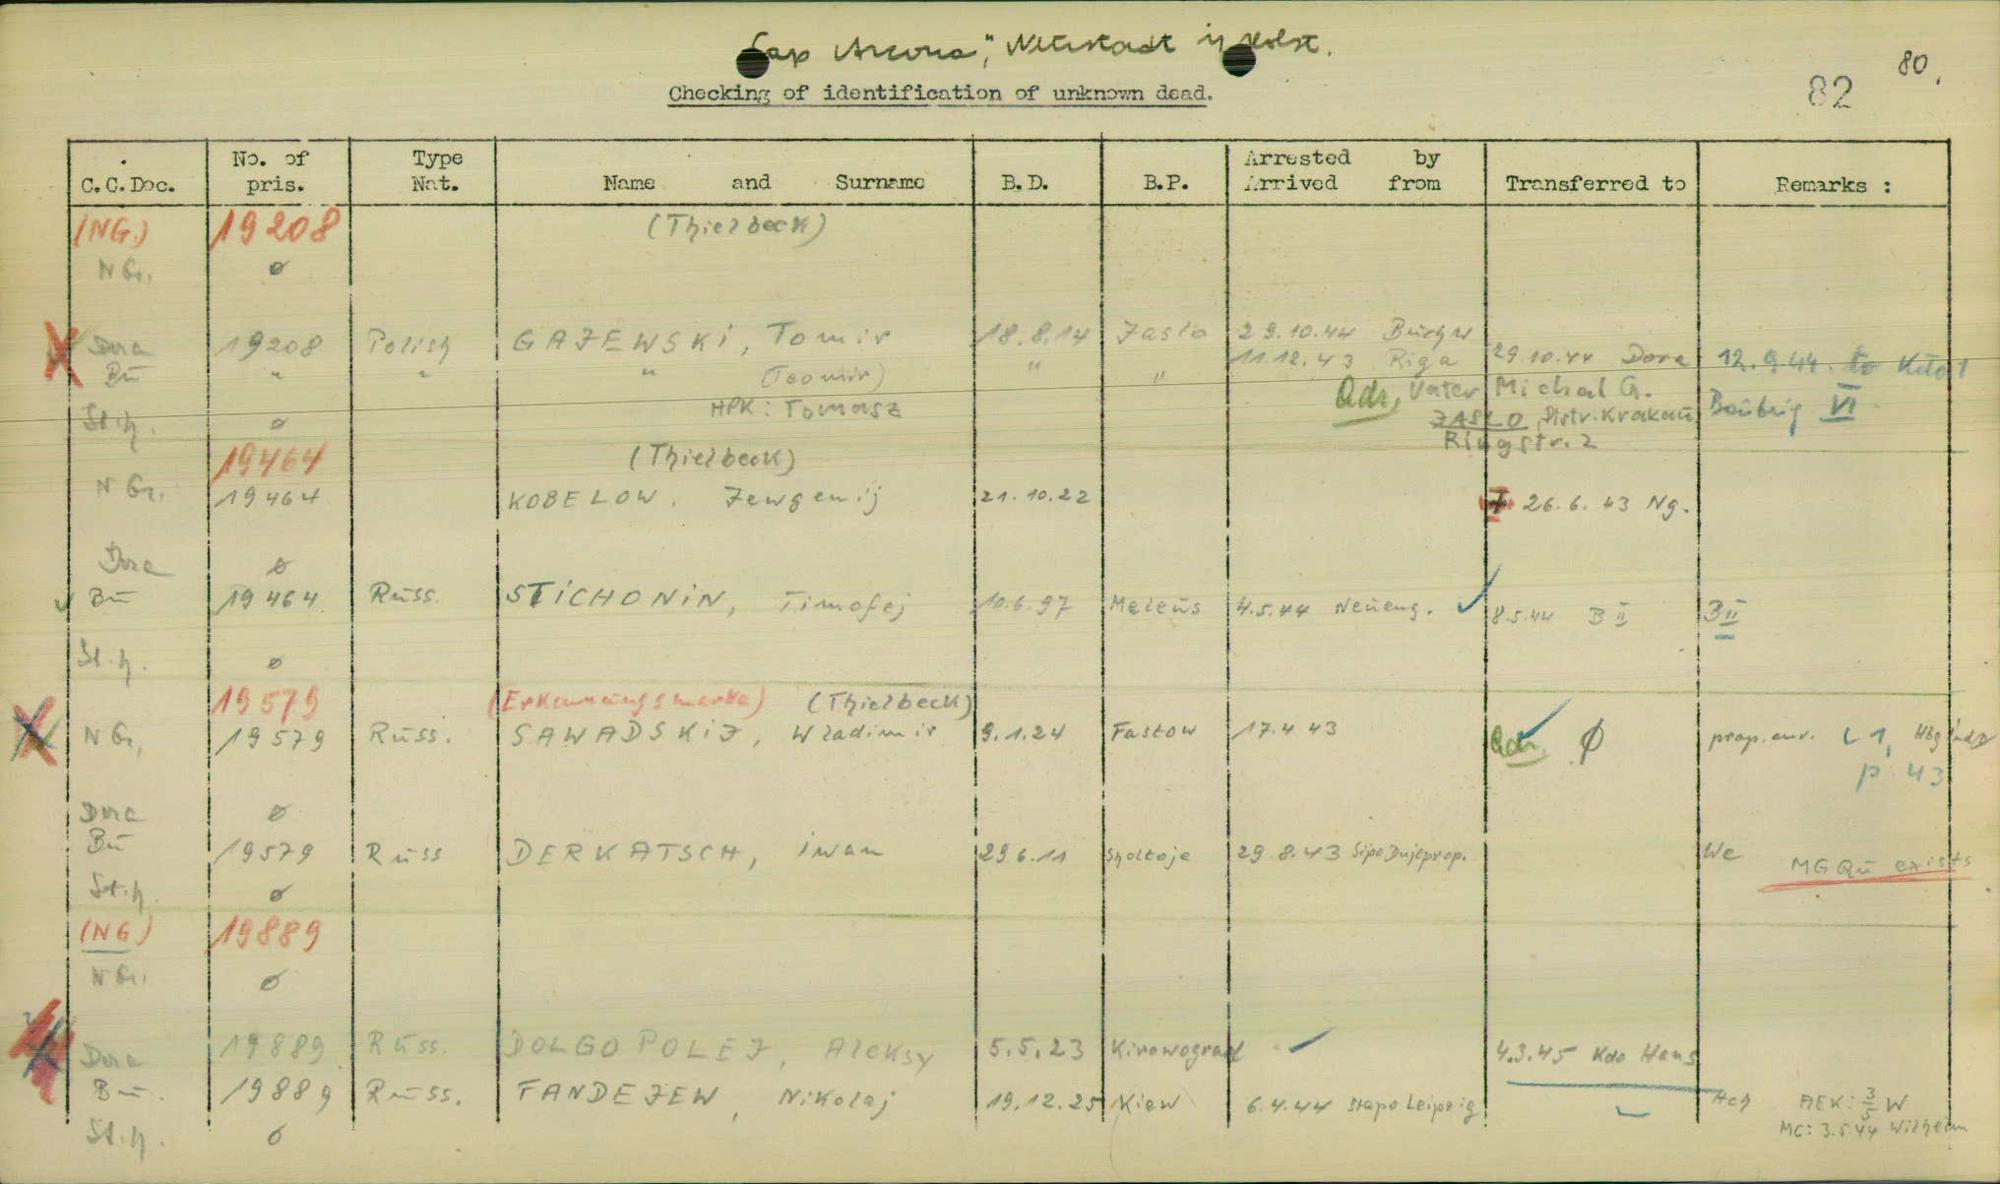 "Cap Arcona", Neustadt i/Holst.
80.
82
Checking of identification of unknown dead.
C.C.Doc. No. of pris. Type Nat. Name and Surname B.D. B.P. Arrested by Arrived from Transferred to Remarks :
(NG.) 19208 (Thielbeck)
NGr. ø
Dora 19208 Polish GAJEWSKI, Tomir 18.8.14 Jaslo 29.10.44 Buchw
Bū " " " (Teomir) " " 11.12.43 Riga 29.10.44 Dora 12.9.44. to Kdo 1
HPK: Tomasz Adr, Vater Michal G.
St.h. ø JASLO, Distr. Krakau Baubrig VI
Ringstr. 2
19464 (Thielbeck)
NGr. 19464 KOBELOW, Jewgenij 21.10.22 26.6.43 Ng.
Dora ø
Bū 19464 Russ. STICHONIN, Timofej 10.6.97 Meleus 4.5.44 Neueng. 8.5.44 B II B II
St.h. ø
19579 (Erkennungsmarke) (Thielbeck)
NGr. 19579 Russ. SAWADSKIJ, Wladimir 9.1.24 Fastow 17.4.43 Adr. Ø
p. 43
Dora ø
Bū 19579 Russ DERKATSCH, Iwan 29.6.11 Sholtoje 29.8.43 Sipo Dnjeprop. We MGQu exists
St.h. ø
(NG) 19889
NGr. ø
Dora 19889 Russ. DOLGOPOLEJ, Aleksy 5.5.23 Kirowograd 4.3.45 Kdo Hans
Bū. 19889 Russ. FANDEJEW, Nikolaj 19.12.25 Kiew 6.4.44 Stapo Leipzig Hch AEK: 3/5 W
St.h. ø MC: 3.5.44 Wilhelm